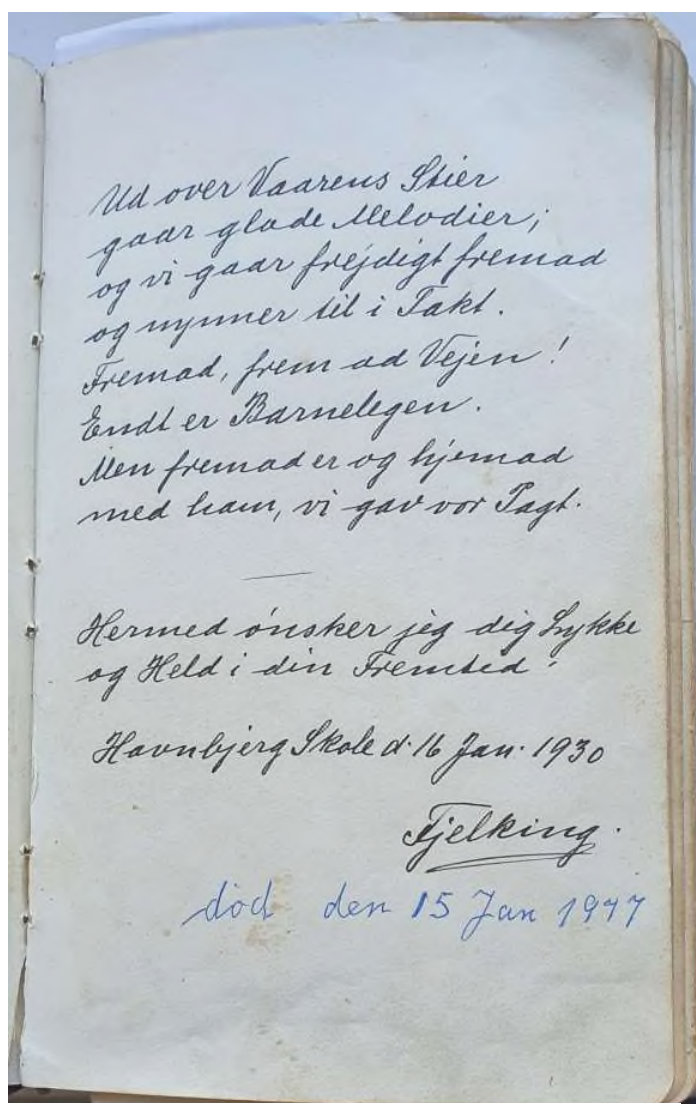 Ud over Vaarens Stier
gaar glade Melodier;
og vi gaar frejdigt fremad
og nynner til i Takt.
Fremad, frem ad Vejen!
Endt er Barnelegen.
Men fremad er og hjemad
med ham, vi gav vor Pagt.
Hermed ønsker jeg dig Lykke
og Held i din Fremtid.
Havnbjerg Skole d. 16 Jan. 1930
Fjelking.
död den 15 Jan 1977